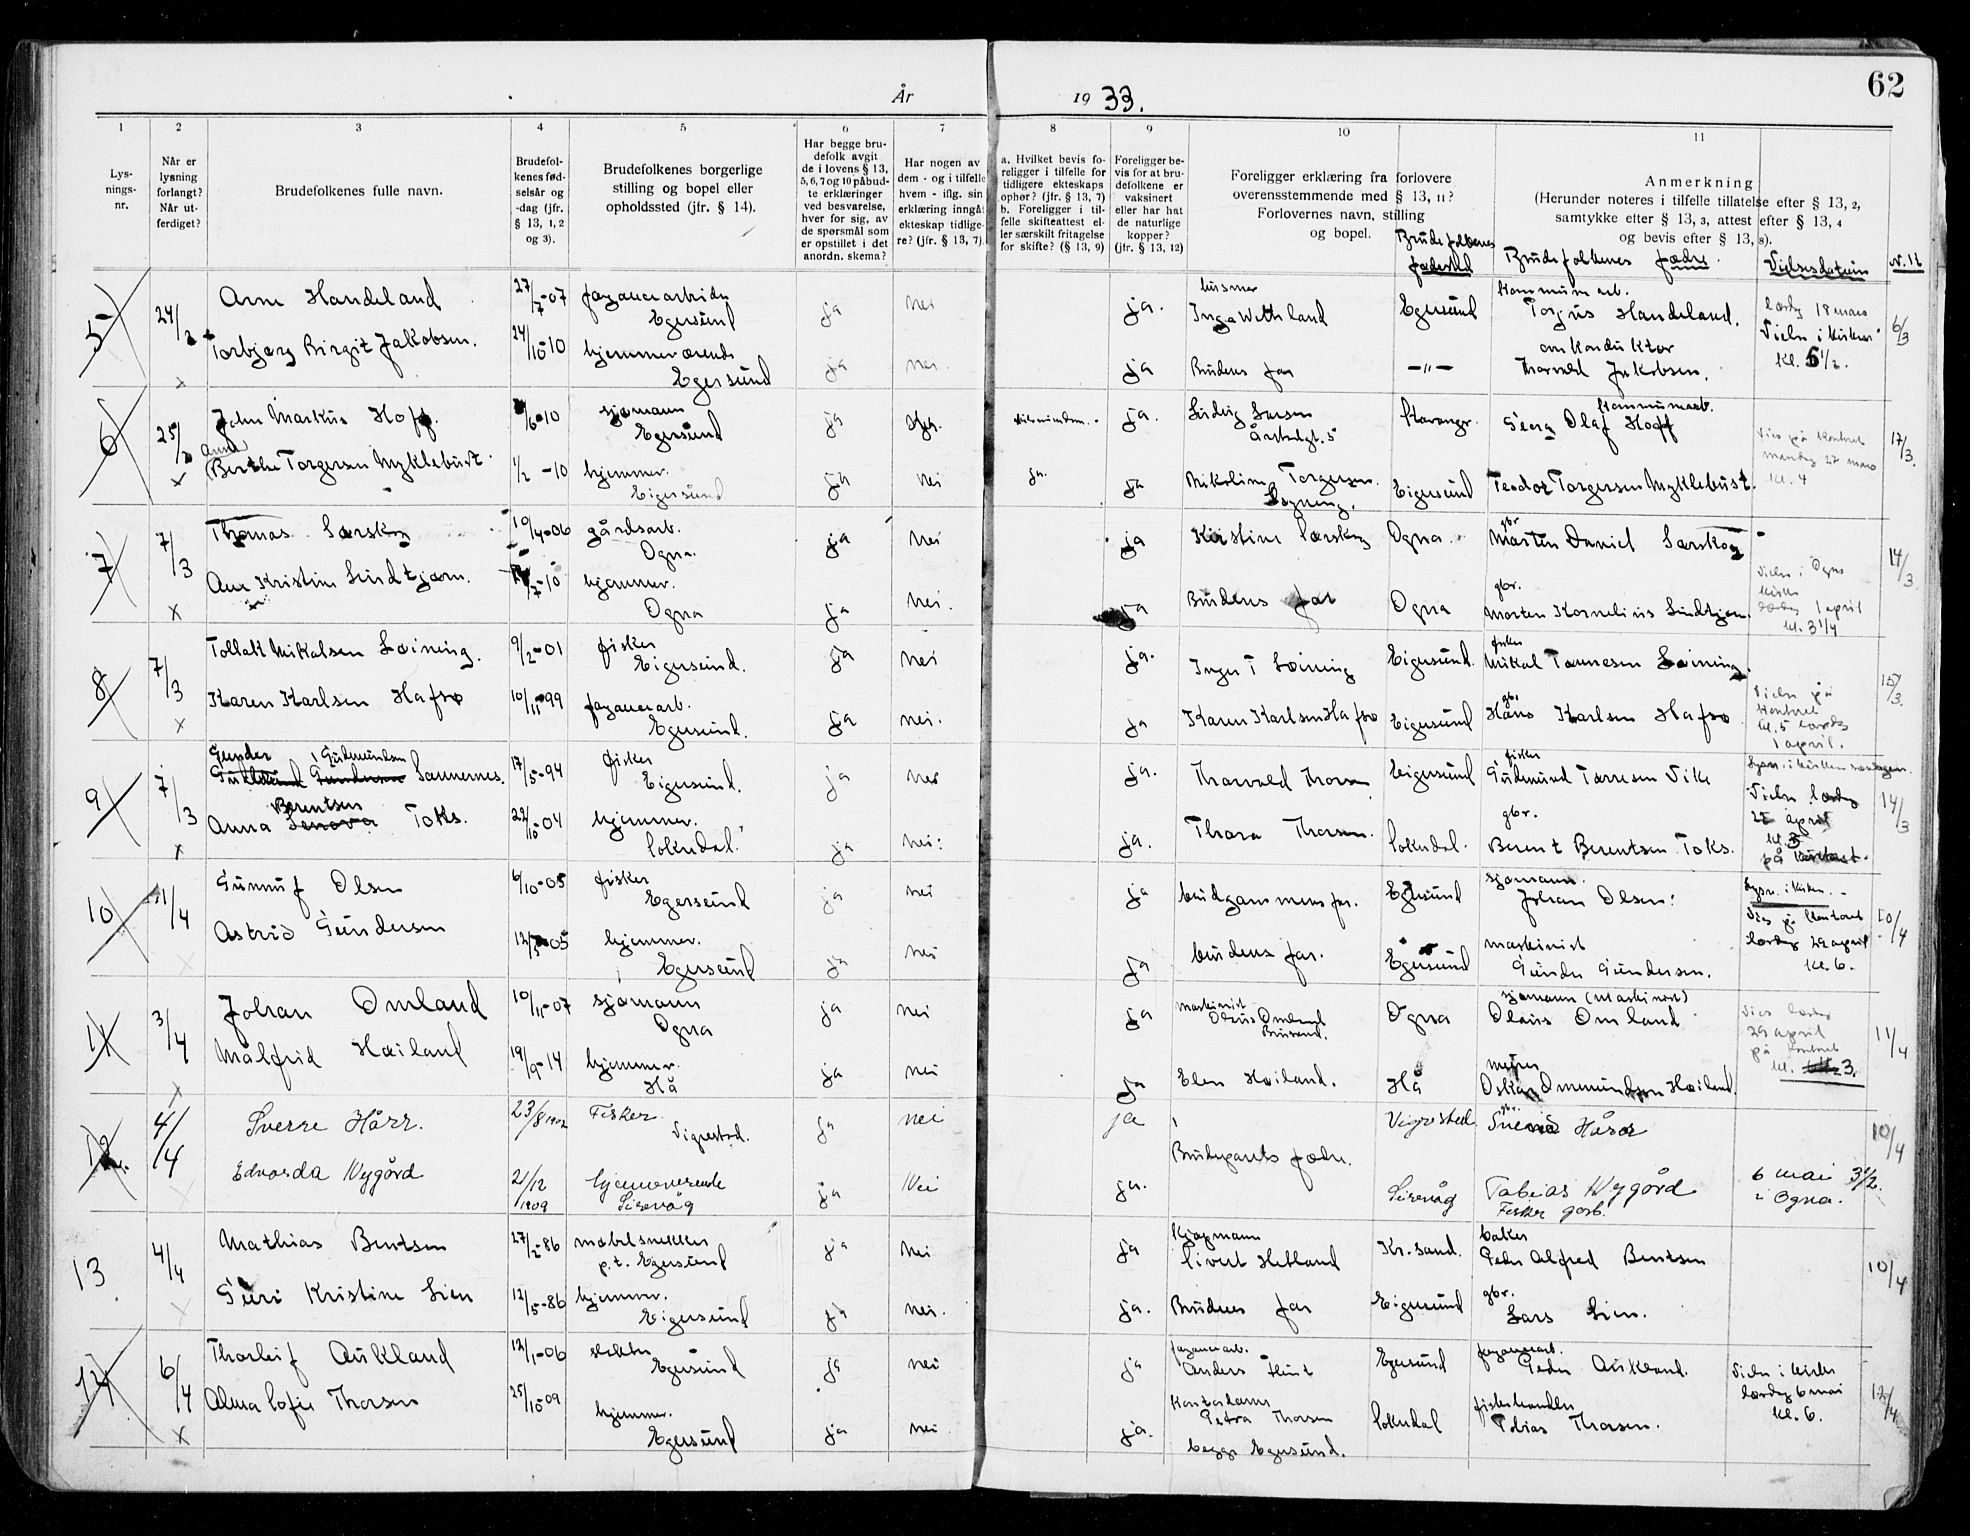 62
År 1933.
1 2 3 4 5 6 7 8 9 10 11
Lys-
nings-
nr.
Når er
lysning
forlangt?
Når ut-
ferdiget?
Brudefolkenes fulle navn.
Brudefol-
kenes fød-
selsår og
-dag (jfr.
§ 13, 1, 2
og 3).
Brudefolkenes borgerlige
stilling og bopel eller
opholdssted (jfr. § 14).
Har begge bru-
defolk avgit
de i lovens § 13,
5, 6, 7 og 10 påbud-
te erklæringer
ved besvarelse,
hver for sig, av
de spørsmål som
er opstillet i det
anordn. skema?
Har nogen av
dem - og i tilfelle
hvem - iflg. sin
erklæring inngåt
ekteskap tidlige-
re? (jfr. § 13, 7).
a. Hvilket bevis fo-
religger i tilfelle for
tidligere ekteskaps
ophør? (jfr. § 13, 7)
b. Foreligger i til-
felle skifteattest el-
ler særskilt fritagelse
for skifte? (§ 13, 9)
Foreligger be-
vis for at bru-
defolkene er
vaksinert
eller har hat
de naturlige
kopper?
(jfr. § 13, 12)
Foreligger erklæring fra forlovere
overensstemmende med § 13, 11?
Forlovernes navn, stilling
og bopel.
Brudefolkenes
fødested
Anmerkning
(Herunder noteres i tilfelle tillatelse efter § 13, 2,
samtykke efter § 13, 3, attest efter § 13, 4
og bevis efter § 13, 8).
Brudefolkenes fædre.
Vielsesdatum
5 24/2 Arne Handeland 27/7-07 fayancearbeider Egersund ja nei ja. husmor Inga Wethland Egersund Kommunearb. Torjus Handeland. lørdag 18 mars 6/3
Torbjørg Birgit Jakobsen. 24/10-10 hjemmeværende Egersund ja nei ja Brudens far -"- omkonduktør Thorvald Jakobsen. Vielse i kirken kl. 5 1/2.
6 25/2 John Markus Hoff. /6-10 sjømann Egersund ja ja. Ludvig Larsen Stavanger Kommunearb. Georg Olaf Hoff 17/3.
Anna Berthe Torgersen Myklebust. 1/2-10 hjemmev. Eigersund ja nei ja. ja Nikoline Torgersen Eigersund Teodor Torgersen Myklebust. Vies på kontoret mandag 27 mars kl. 4
7 7/3 Thomas Særskog 10/4-06 gårdsarb. Ogna. ja nei ja Kirstine Særskog Ogna. gbr. Morten Daniel Særskog 14/3.
Ane Kristine Lindtjørn. /7-10 hjemmev. Ogna ja nei. ja Brudens far Ogna gbr. Morten Kornelius Lindtjørn. Vielse i Ogna kirke lørdag 1 april kl. 3 1/4
8 7/3 Tollak Mikalsen Løining. 9/2-01 fisker Eigersund. ja nei ja. Inger T Løining Eigersund. fisker Mikal Tønnesen Løining. 15/3.
Karen Karlsen Hafsø 10/11-99 fayancearb. Egersund. ja nei. ja Karen Karlsen Hafsø Eigersund gbr Hans Karlsen Hafsø Vielse på kontoret kl. 5 lørdag 1 april.
9 7/3 Gunder Gudmundsen Gudmund Gundersen Sannernes. 17/5-94 fisker Eigersund. ja nei ja. Thorvald Thorsen Eigersund fisker Gudmund Tønnesen Vike Lysn. i kirken søndagen.
Anna Berentsen Lenova Toks. 22/10-04 hjemmev. Sokndal. ja nei. ja. Thora Thorsen. Sokndal. gbr. Berent Berentsen Toks. Vielse lørdag 25 april kl. 3 på kontoret. 14/3
10 11/4 Gunnuf Olsen 6/10-05 fisker Egersund ja nei ja brudgommens far. Egersund sjømann. Johan Olsen. Lysn. i kirken.
Astrid Gundersen 12/3-05 hjemmev. Egersund ja nei ja brudens far. Egersund maskinist Gunder Gundersen. Vies på kontoret lørdag 29 april kl. 6. 10/4
11 3/4 Johan Omland 10/11-07 sjømann Ogna ja nei ja maskinist Olaus Omland Brusand. Ogna sjømann (maskinist) Olaus Omland Vies lørdag 29 april på kontoret kl. 3. 11/4
Målfrid Høiland 19/9-14 hjemmev. Hå ja nei ja Elen Høiland. Hå murer Oskar Ommundsen Høiland
12. 4/4 Sverre Hårr. 23/8 1902 Fisker. Vigrestad. ja nei ja Vigrestad gbr. Hårr 10/4
Edvarda Nygård 21/12 1909 hjemmeværende Sirevåg ja Nei ja. Brudeparets fædre. Sirevåg Tobias Nygård Fisker gårb. 6 mai 3 1/2. i Ogna.
13 4/4 Mathias Bentsen 27/2-86 møbelsnekker p.t. Egersund ja nei ja Kjøpmann Sivert Hetland Kr.sand. baker Peder Alfred Bentsen 10/4
Guri Kristine Lien 12/5-86 hjemmev. Eigersund ja nei. ja. Brudens far Eigersund gbr. Lars Lien.
14 6/4 Thorleif Aukland 12/1-06 Egersund ja nei ja fayancearb. Anders Egersund fayancearb. Peder Aukland. Vielse i kirke lørdag 6 mai kl. 6. 12/4
Alma Sofie Thorsen 25/10-09 hjemmev. Egersund ja nei ja. Kontordame Petra Thorsen begge Egersund. Sokndal fiskehandler Tobias Thorsen.